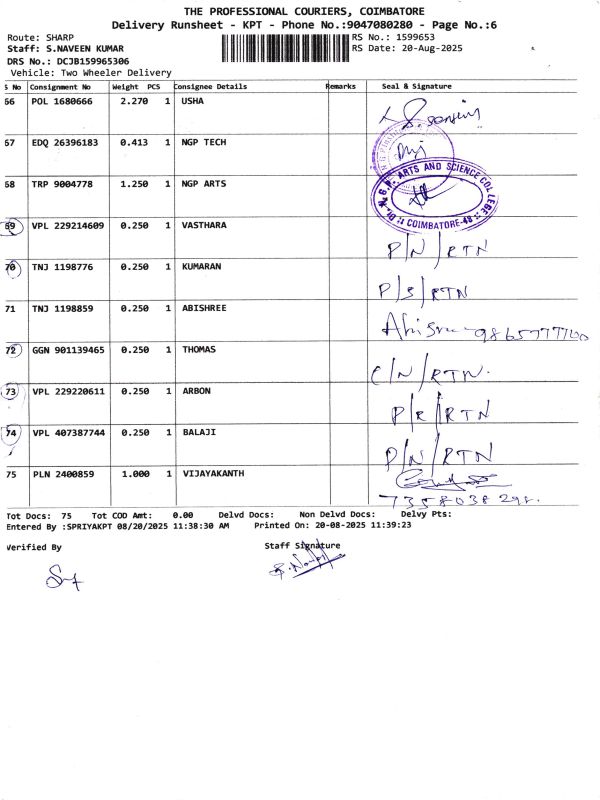 THE PROFESSIONAL COURIERS, COIMBATORE
Delivery Runsheet - KPT - Phone No.:9047080280 - Page No.:6
Route: SHARP RS No.: 1599653
Staff: S.NAVEEN KUMAR RS Date: 20-Aug-2025
DRS No.: DCJB159965306
Vehicle: Two Wheeler Delivery
S No Consignment No Weight PCS Consignee Details Remarks Seal & Signature
66 POL 1680666 2.270 1 USHA
67 EDQ 26396183 0.413 1 NGP TECH
68 TRP 9004778 1.250 1 NGP ARTS
Dr. N.G.P. ARTS AND SCIENCE COLLEGE
COIMBATORE-48
69 VPL 229214609 0.250 1 VASTHARA P/N/RTN
70 TNJ 1198776 0.250 1 KUMARAN P/S/RTN
71 TNJ 1198859 0.250 1 ABISHREE 9865777700
72 GGN 901139465 0.250 1 THOMAS C/N/RTN.
73 VPL 229220611 0.250 1 ARBON P/R/RTN
74 VPL 407387744 0.250 1 BALAJI P/N/RTN
75 PLN 2400859 1.000 1 VIJAYAKANTH
7358038298.
Tot Docs: 75 Tot COD Amt: 0.00 Delvd Docs: Non Delvd Docs: Delvy Pts:
Entered By :SPRIYAKPT 08/20/2025 11:38:30 AM Printed On: 20-08-2025 11:39:23
Verified By Staff Signature